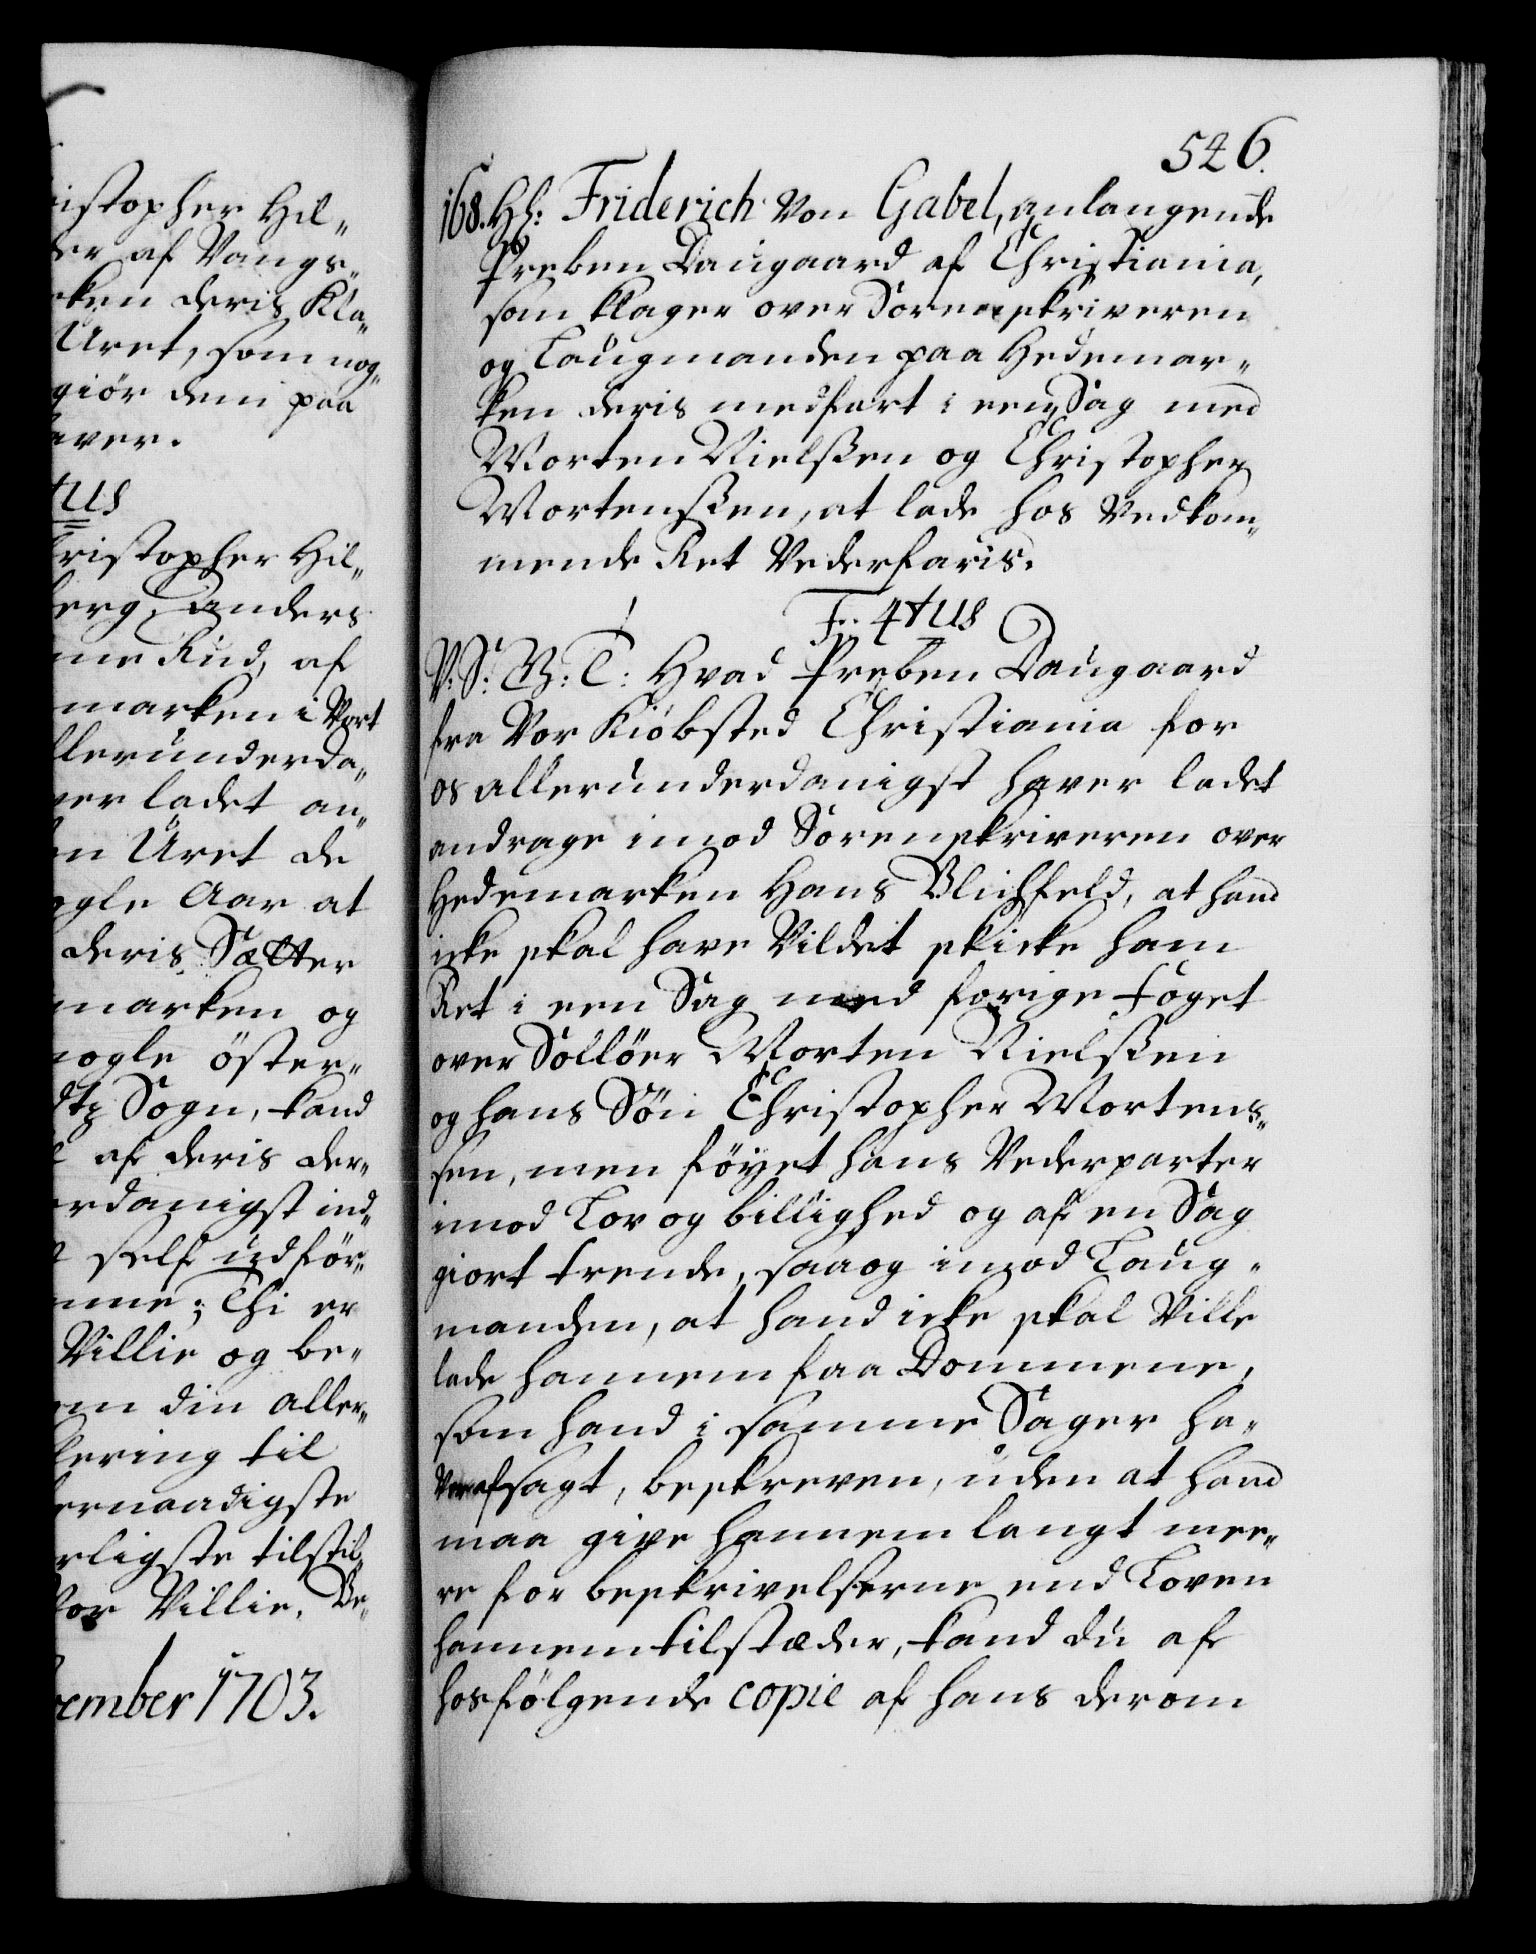 istopher Hil„
er af Vangs„
ken deris Kla„
Uret, som nog„
giør dem paa
aver.
tus
ristopher Hil„
berg, Anders
me Rud, af
marken i Vort
llerunderda„
ver ladet an„
n Uret de
ogle Aar at
deris Sætter
marken og
nogle öster„
dtz Sogn, kand
af deris der„
rdanigst ind„
self udför„
mme; Thi er
Villie og be„
em din aller„
lering til
ernaadigste
rligste tilstil„
Vor Villie. Be„
vember 1703.
526.
168. Hl: Friderich von Gabel, anlangende
Preben Daugaard af Christiania,
som klager over Sorenskriveren
og Laugmanden paa Hedemar„
ken deris medfart i een Sag med
Morten Nielssen og Christopher
Mortenssen, at lade hos Vedkom„
mende Ret Vederfaris.
F: 4tus
V: S: G: T: Hvad Preben Daugaard
fra Vor Kiöbsted Christiania for
os allerunderdanigst haver ladet
andrage imod Sorenskriveren over
Hedemarken Hans Blichfeld, at hand
icke skal have Vildet skicke ham
Ret i een Sag med forige Foget
over Sollöer Morten Nielssen
og hans Sön Christopher Mortens„
sen, men föyet hans Vederparter
imod Lov og billighed og af en Sag
giort trende, saa og imod Laug„
manden, at hand icke skal Ville
lade hannem faa Dommene,
som hand i samme Sager ha„
ver afsagt, beskreven, uden at hand
maa give hannem langt mee„
re for beskrivelserne end Loven
hannem tilstæder, kand du af
hosfølgende copie af hans derom